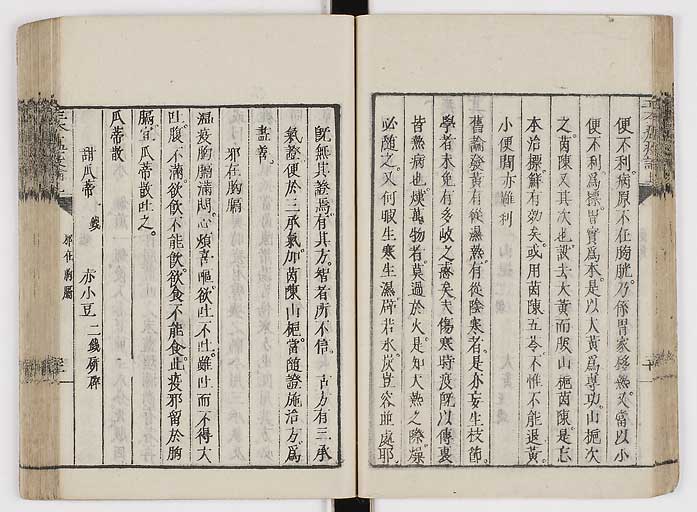 便不利。病原不在膀胱。乃係胃家移熱。又當以小
便不利爲標。胃實爲本。是以大黃爲專功。山梔次
之。茵陳又其次也。設去大黃而服山梔茵陳。是忘
本治標。鮮有効矣。或用茵陳五苓。不惟不能退黃。
小便間亦難利
舊論發黃有從濕熱。有從陰寒者。是亦妄生枝節。
學者未免有多岐之惑矣。夫傷寒時疫。既以傳裏。
皆熱病也。熯萬物者。莫過於火。是知大熱之際。燥
必隨之。又何暇生寒生濕。辟若氷炭。豈容並處耶。
既無其證。焉有其方。智者所不信。古方有三承
氣證。便於三承氣加茵陳山梔。當隨證施治。方爲
盡善。
邪在胸膈
溫疫胸膈滿悶。心煩喜嘔。欲吐不吐。雖吐而不得大
吐。腹不滿。欲飲不能飲。欲食不能食。此疫邪留於胸
膈。宜瓜蔕散吐之。
瓜蔕散
甜瓜蔕 一錢 赤小豆 二錢研碎
邪在胸膈